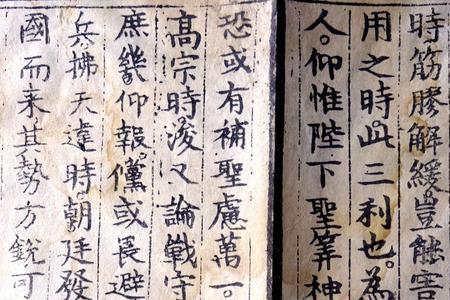 時筋膠解緩豈能空
用之時此三利也。為
人。仰惟陛下聖筭神
恐或有補聖慮萬一。
高宗時浚又論戰守
庶幾仰報。儻或長避
兵拂天違時。朝廷發
國而来其勢方銳可